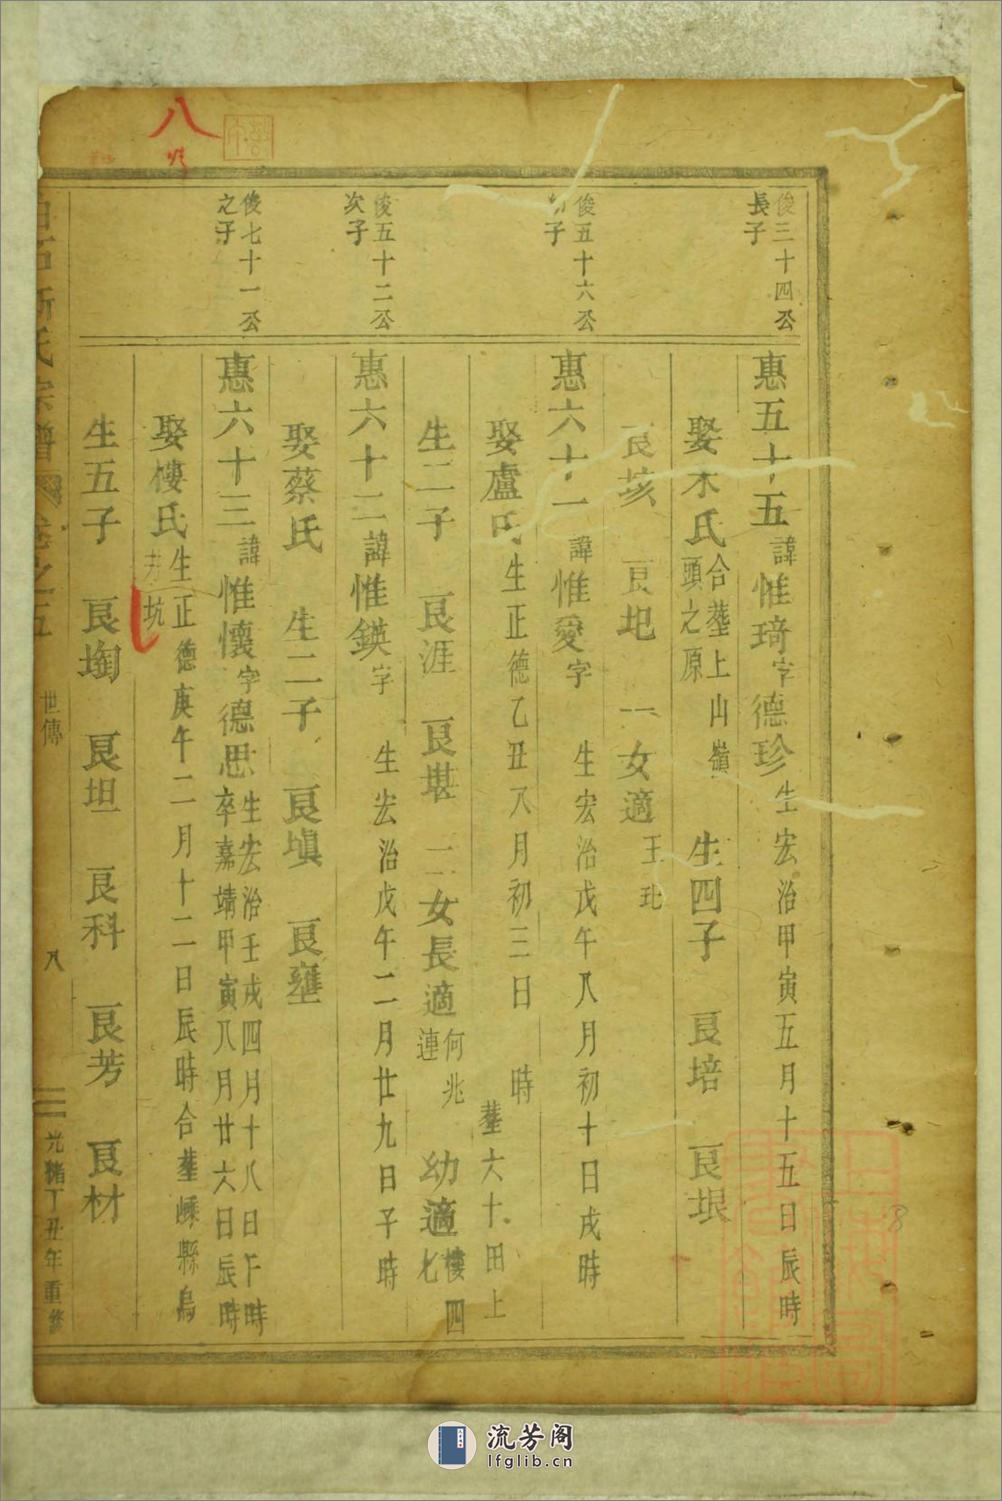 八
俊三十四公
長子
惠五十五諱惟琦字德珍生宏治甲寅五月十五日辰時
娶木氏合塟上山嶺頭之原 生四子 良培 良垠
良垓 良圯 一女適王玭
俊五十六公
子
惠六十一諱惟愛字 生宏治戊午八月初十日戌時
娶盧氏生正德乙丑八月初三日 時塟六十田上
生二子 良涯 良堪 二女長適何兆連 幼適樓四七
俊五十二公
次子
惠六十二諱惟鍈字 生宏治戊午二月廿九日子時
娶蔡氏 生二子 良塡 良壅
俊七十一公
之子
惠六十三諱惟懷字德思生宏治壬戌四月十八日下時
卒嘉靖甲寅八月廿六日辰時
娶樓氏生正德庚午二月十二日辰時合塟嵊縣烏坑
生五子 良𡌴 良坦 良科 良芳 良材
白石斯氏宗譜 卷之五 世傳 八 光緒丁丑年重修
8
流芳阁
lfglib.cn